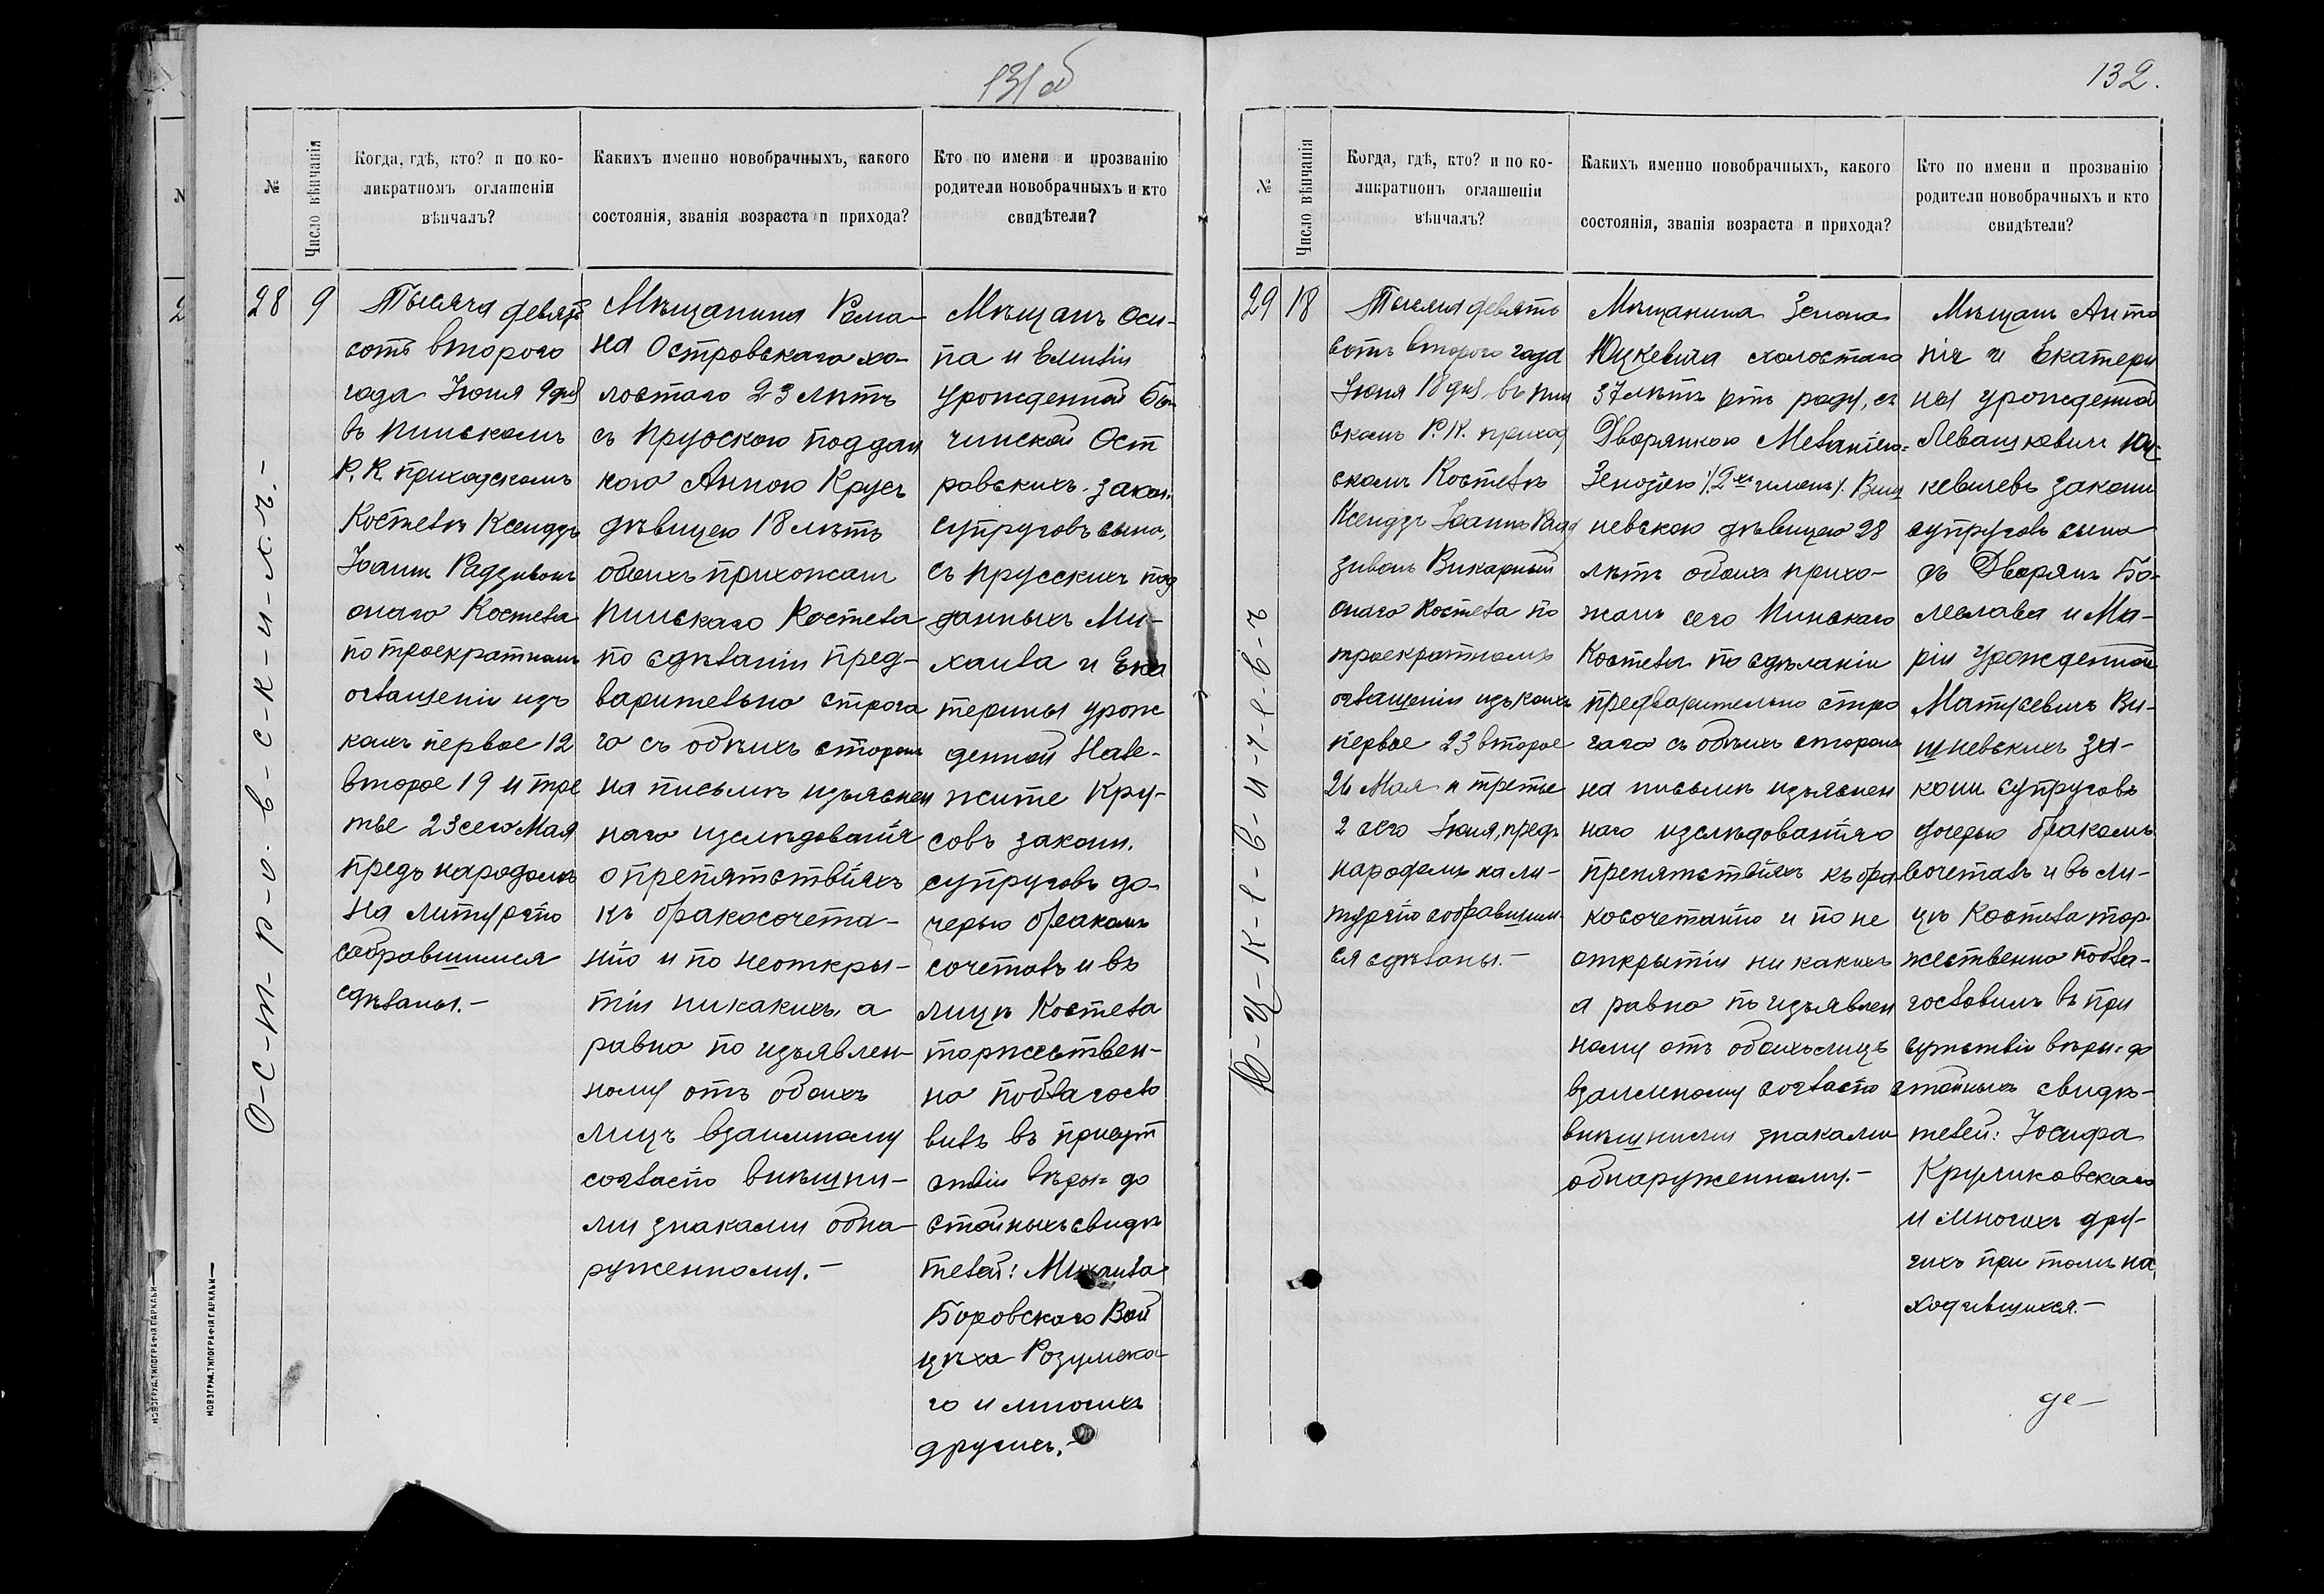 131 об
№
Число вѣнчанія
Когда, гдѣ, кто? и по ко-
ликратномъ оглашеніи
вѣнчалъ?
Какихъ именно новобрачныхъ, какого
состоянія, званія возраста и прихода?
Кто по имени и прозванію
родители новобрачныхъ и кто
свидѣтели?
28
9
О-с-т-р-о-в-с-к-и-х-ъ.-
Тысяча девят
сотъ второго
года Іюня 9 дня
въ Пинскомъ
Р. К. приходскомъ
Костелѣ Ксендзъ
Іоаннъ Радзивонъ
онаго Костела
по троекратномъ
оглашеніи изъ
коихъ первое 12
второе 19 и тре
тье 23 сего Мая
предъ народомъ
на литургію
собравшимся
сдѣланы.-
Мѣщанина Рома-
на Островскаго хо-
лостаго 23 лѣтъ
съ Прусскою поддан
кою Анною Крусъ
дѣвицею 18 лѣтъ
обоихъ прихожан
Пинскаго Костела
по сдѣланіи пред-
варительно строга
го съ обѣихъ сторонъ
на письмѣ изъяснен
наго изслѣдованія
о препятствіяхъ
къ бракосочета-
нію и по неоткры-
тіи никакихъ, а
равно по изъявлен-
ному отъ обоихъ
лицъ взаимному
согласію внѣшни-
ми знаками обна-
руженному.-
Мѣщанъ Оси-
па и Емиліи
урожденной
чинской Ост
ровскихъ закон.
супруговъ сына,
съ прусскихъ под
данныхъ Ми-
хаила и Ека
терины урож
денной Нале-
жите Кру-
совъ законн.
супруговъ до-
черью бракомъ
сочеталъ и въ
лицѣ Костела
торжествен-
но поблагосло
вилъ въ присут
ствіи вѣры-до
стойныхъ свидѣ
телей: Михаила
Боровскаго Вой
цѣха Розумска-
го и многихъ
другихъ.-
НОВОГРУД. ТИПОГРАФІЯ ГАРКАВИ
НОВОГРУД. ТИПОГРАФІЯ ГАРКАВИ
132.
№
Число вѣнчанія
Когда, гдѣ, кто? и по ко-
ликратномъ оглашеніи
вѣнчалъ?
Какихъ именно новобрачныхъ, какого
состоянія, званія возраста и прихода?
Кто по имени и прозванію
родители новобрачныхъ и кто
свидѣтели?
29
18
Ю-ц-к-е-в-и-ч-е-в-ъ
Тысяча девять
сотъ второго года
Іюня 18 дня, въ Пин
скомъ Р. К. приход
скомъ Костелѣ
Ксендзъ Іоаннъ Рад
зивонъ Викарный
онаго Костела по
троекратномъ
оглашеніи изъ коихъ
первое 23 второе
26 Мая и третье
2 сего Іюня, предъ
народомъ на ли-
тургію собравшим-
ся сдѣланы.-
Мѣщанина Зенона
Юцкевича холостаго
37 лѣтъ отъ роду, съ
Дворянкою Меланіею-
Зенобіею /2хъ именъ/ Виш
невскою дѣвицею 28
лѣтъ обоихъ прихо-
жанъ сего Пинскаго
Костела по сдѣланіи
предварительно стро
гаго съ обѣихъ сторонъ
на письмѣ изъяснен
наго изслѣдованія о
препятствіяхъ къ бра
косочетанію и по не
открытіи никакихъ
а равно по изъявлен
ному отъ обоихъ лицъ
взаимному согласію
внѣшними знаками
обнаруженному.-
Мѣщанъ Анто
нія и Екатери
ны урожденной
Левашкевичъ Юц-
кевичевъ законн
супруговъ сына
съ Дворянъ Бо-
леслава и Ма-
ріи урожденной
Матусевичъ Ви-
шневскихъ за-
конн супруговъ
дочерью бракомъ
сочеталъ и въ ли-
цѣ Костела тор-
жественно побла-
гословилъ въ при
сутствіи вѣры-до
стойныхъ свидѣ-
телей: Іосифа
Круликовскаго
и многихъ дру-
гихъ при томъ на
ходившихся.-